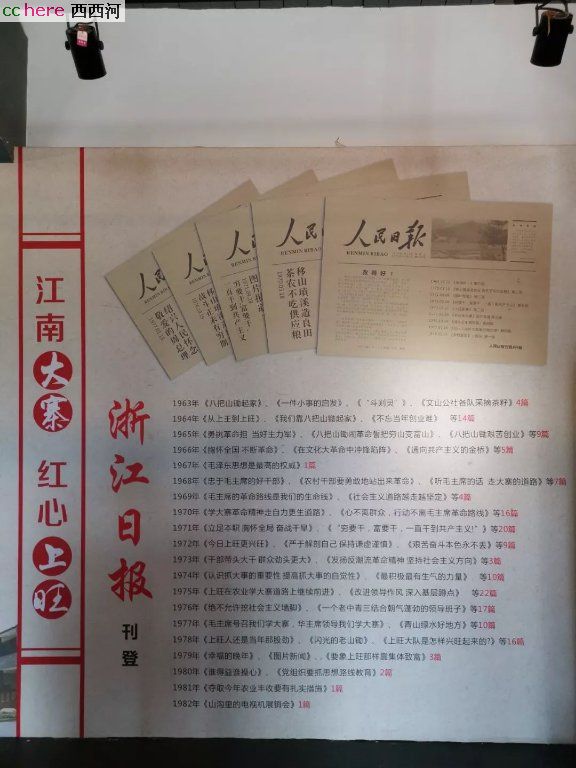 cchere 西西河
江南大寨 红心上旺
人民日报
RENMIN RIBAO
移山填溪造良田
茶农不吃供应粮
敬爱的周总理
浙江日报
刊登
1963年《八把山锄起家》、《一件小事的启发》、《"斗刘灵"》、《文山公社各队采摘茶籽》4篇
1964年《从上王到上旺》、《我们靠八把山锄起家》、《不忘当年创业难》 等14篇
1965年《勇挑革命担 当好主力军》、《八把山锄闹革命誓把穷山变富山》、《八把山锄艰苦创业》等9篇
1966年《胸怀全国 不断革命》、《在文化大革命中冲锋陷阵》、《通向共产主义的金桥》等5篇
1967年《毛泽东思想是最高的权威》1篇
1968年《忠于毛主席的好干部》、《农村干部要勇敢地站出来革命》、《听毛主席的话 走大寨的道路》等7篇
1969年《毛主席的革命路线是我们的生命线》、《社会主义道路越走越坚定》等4篇
1970年《学大寨革命精神走自力更生道路》、《心不离群众，行动不离毛主席革命路线》等16篇
1971年《立足本职 胸怀全局 奋战干旱》、《"穷要干，富要干，一直干到共产主义!"》等20篇
1972年《今日上旺更兴旺》、《严于解剖自己 保持谦虚谨慎》、《艰苦奋斗本色永不丢》等9篇
1973年《干部带头大干 群众劲头更大》、《发扬反潮流革命精神 坚持社会主义方向》等3篇
1974年《认识抓大事的重要性 提高抓大事的自觉性》、《最积极最有生气的力量》 等19篇
1975年《上旺在农业学大寨道路上继续前进》、《改进领导作风 深入基层蹲点》 等22篇
1976年《绝不允许挖社会主义墙脚》、《一个老中青三结合朝气蓬勃的领导班子》等17篇
1977年《毛主席号召我们学大寨，华主席领导我们学大寨》、《青山绿水好地方》等10篇
1978年《上旺人还是当年那股劲》、《闪光的老山锄》、《上旺大队是怎样兴旺起来的?》等16篇
1979年《幸福的晚年》、《图片新闻》、《要象上旺那样靠集体致富》3篇
1980年《谁得益谁操心》、《党组织要抓思想路线教育》2篇
1981年《夺取今年农业丰收要有扎实措施》1篇
1982年《山沟里的电视机展销会》1篇